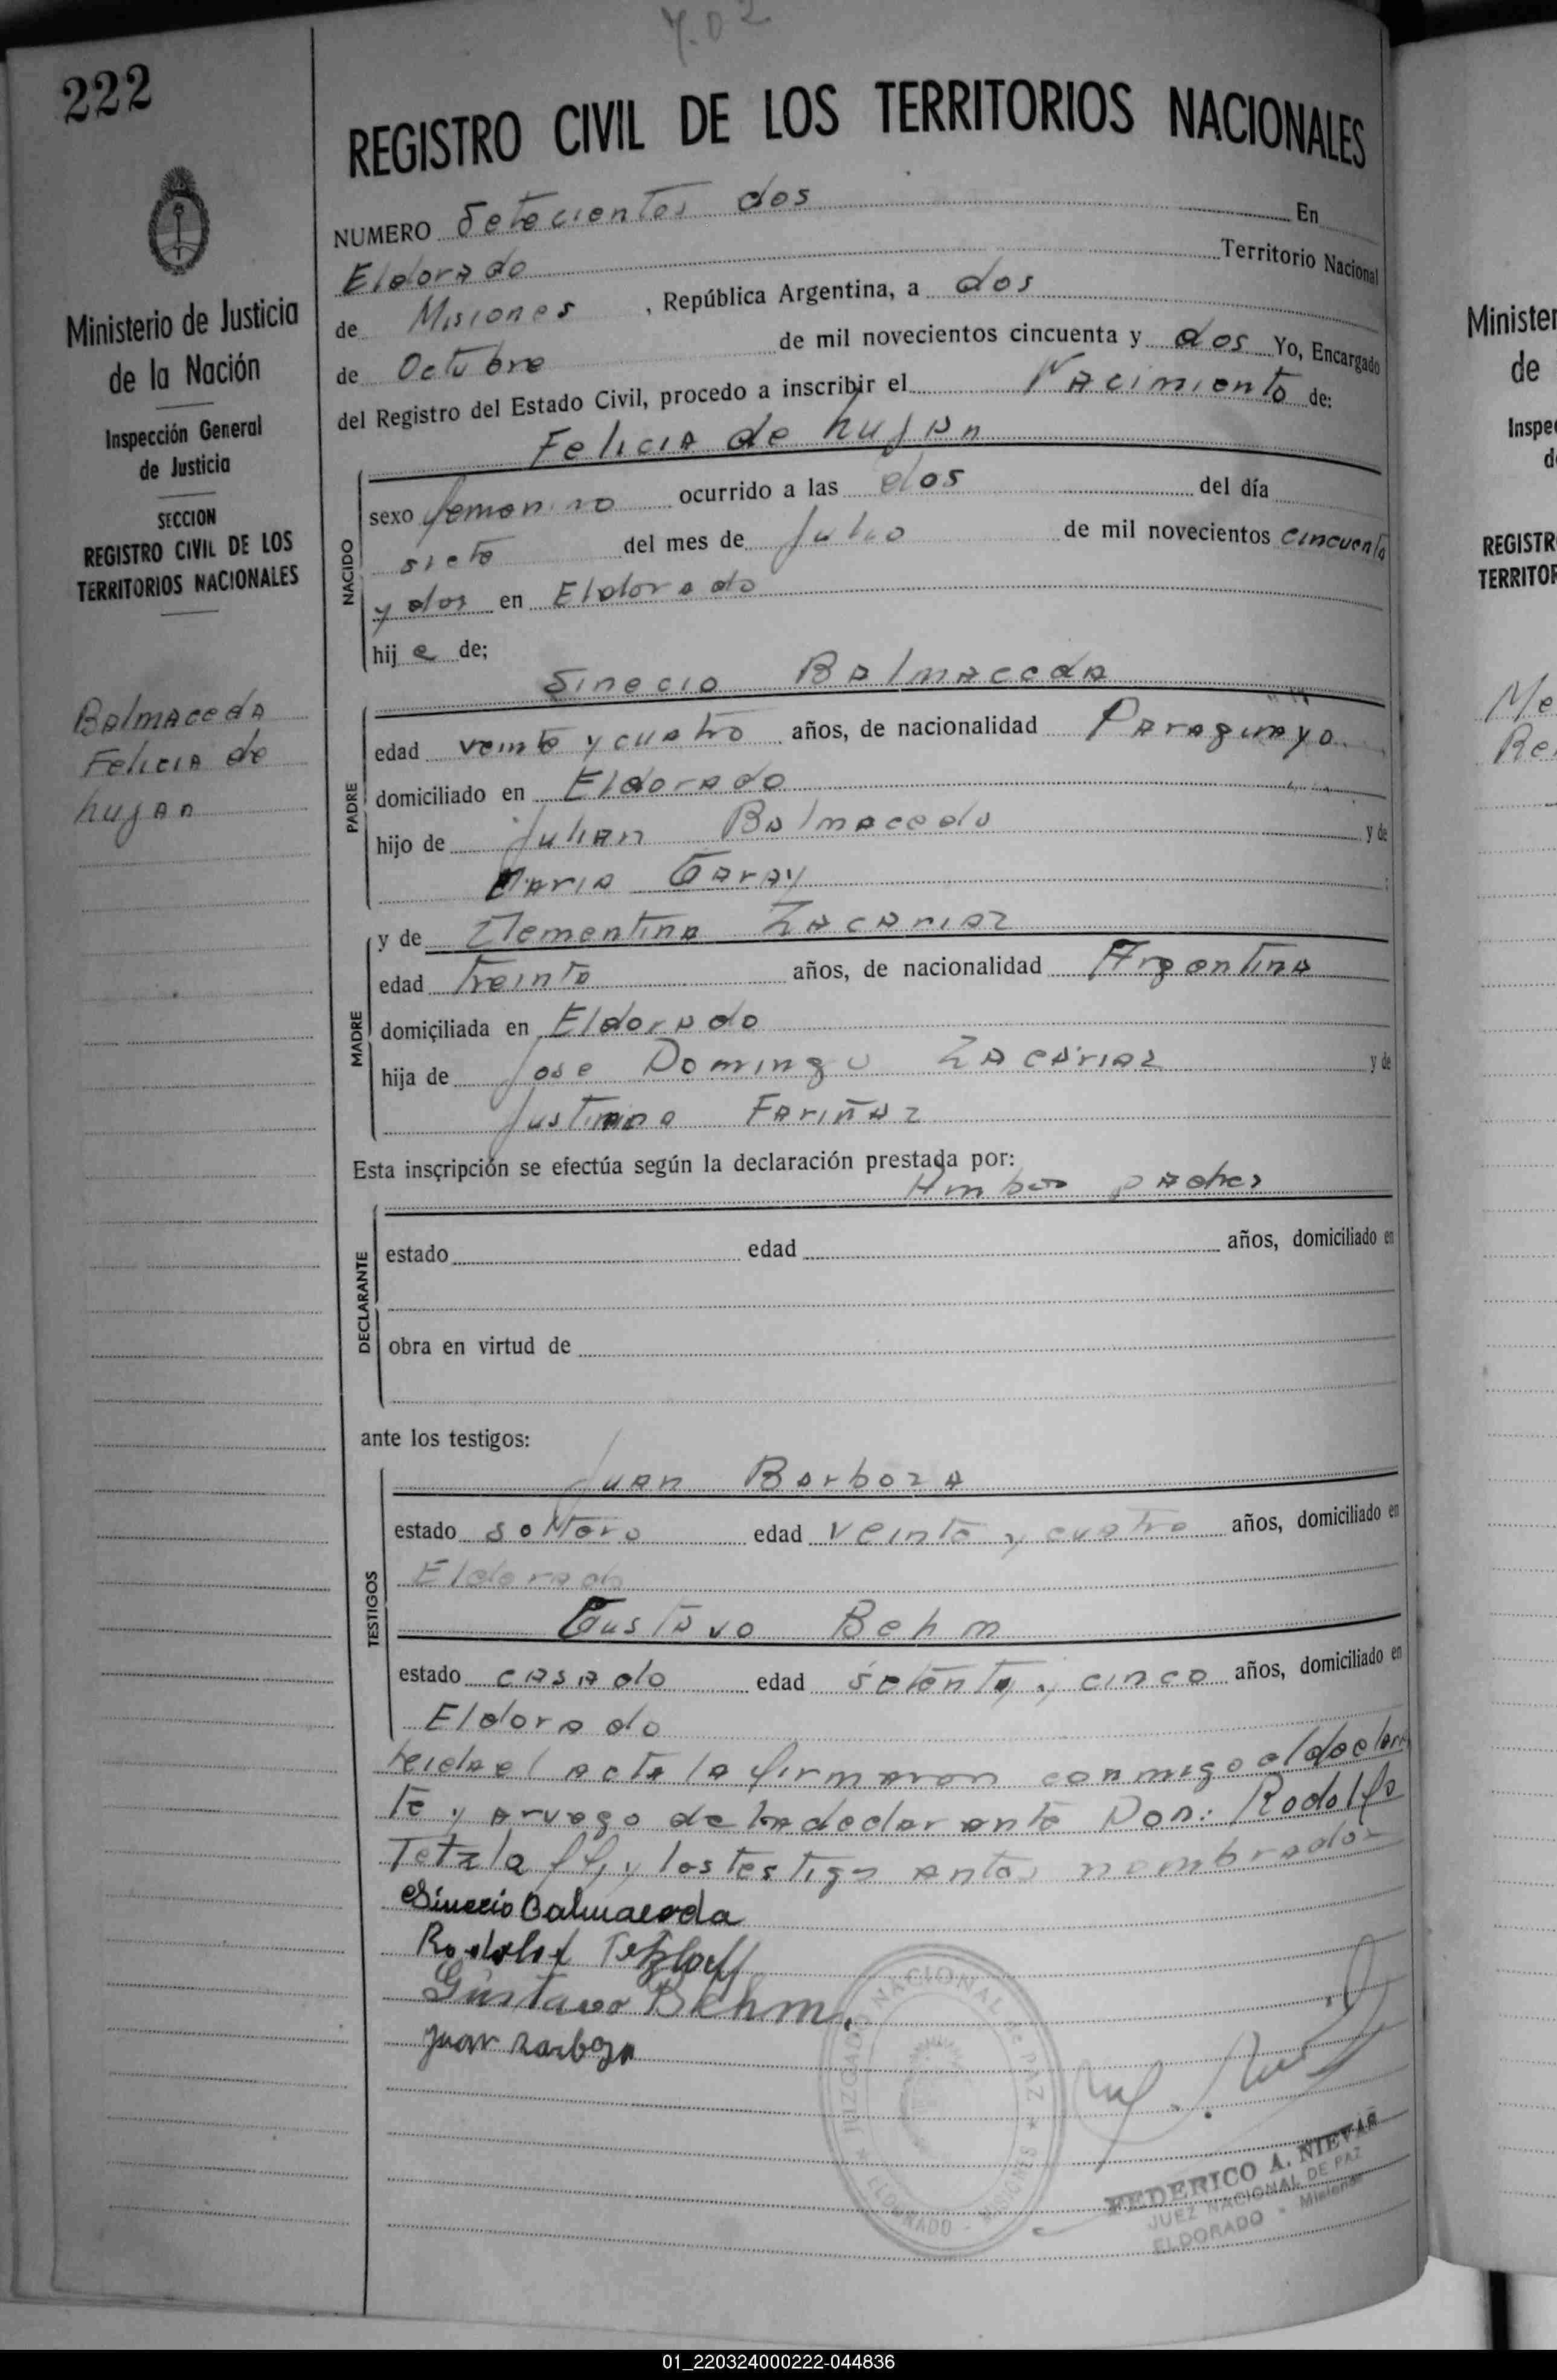 702
222
REGISTRO CIVIL DE LOS TERRITORIOS NACIONALES
NUMERO Setecientos dos En
Eldorado Territorio Nacional
de Misiones , República Argentina, a dos
de Octubre de mil novecientos cincuenta y dos Yo, Encargado
del Registro del Estado Civil, procedo a inscribir el Nacimiento de:
Felicia de Lujan
Ministerio de Justicia
de la Nación
Inspección General
de Justicia
SECCION
REGISTRO CIVIL DE LOS
TERRITORIOS NACIONALES
Balmaceda
Felicia de
Lujan
NACIDO
sexo femenino ocurrido a las dos del día
siete del mes de Julio de mil novecientos cincuenta
y dos en Eldorado
hij a de;
Sinecio Balmaceda
PADRE
edad veinte y cuatro años, de nacionalidad Paraguaya
domiciliado en Eldorado
hijo de Julian Balmaceda y de
Maria Garay
MADRE
y de Clementina Zacariaz
edad treinta años, de nacionalidad Argentina
domiciliada en Eldorado
hija de Jose Domingo Zacariaz y de
Justiniana Fariñaz
Esta inscripción se efectúa según la declaración prestada por:
Ambos padres
DECLARANTE
estado edad años, domiciliado en
obra en virtud de
ante los testigos:
TESTIGOS
Juan Barboza
estado soltero edad veinte y cuatro años, domiciliado en
Eldorado
Gustavo Behm
estado casado edad setenta y cinco años, domiciliado en
Eldorado
Leida el acta la firmaron conmigo el declaran
te y aruego de la declarante Don: Rodolfo
Tetzlaff, y los testigo antes nombrados
Sinecio Balmaceda
Rodolof Tetzlaff
Gustavo Behm.
Juan Barboza
JUZGADO NACIONAL DE PAZ
ELDORADO - MISIONES
FEDERICO A. NIEVAS
JUEZ NACIONAL DE PAZ
ELDORADO - Misiones
Minister
de
Inspe
d
REGISTR
TERRITOR
Me
Re
01_220324000222-044836